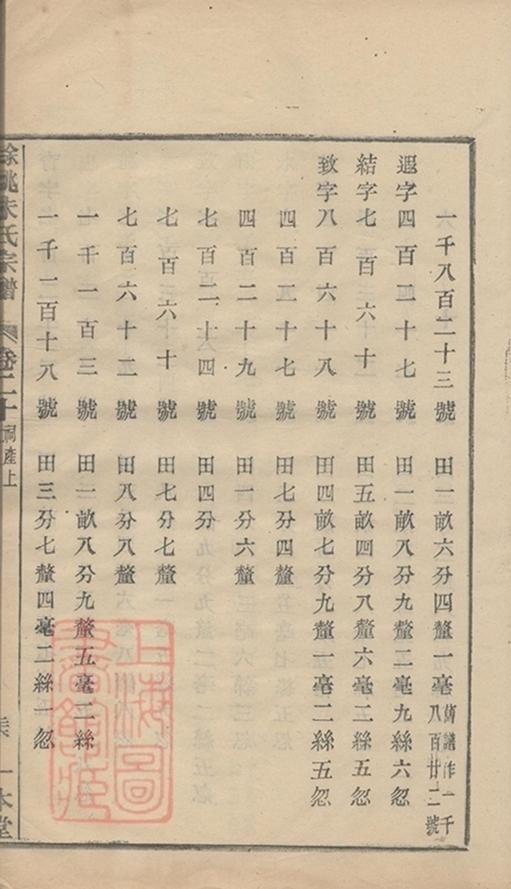 一千八百二十三號 田一畝六分四釐一毫 前譜作一千八百廿二號
遐字四百四十七號 田一畝八分九釐二毫九絲六忽
結字七百六十號 田五畝四分八釐六毫三絲五忽
致字八百六十八號 田四畝七分九釐一毫二絲五忽
四百二十七號 田七分四釐
四百二十九號 田一分六釐
七百二十四號 田四分
七百六十號 田七分七釐
七百六十二號 田八分八釐
一千一百三號 田一畝八分九釐五毫三絲
一千二百十八號 田三分七釐四毫二絲一忽
餘姚朱氏宗譜 卷二十 祠產上 一本堂
上海圖書館藏